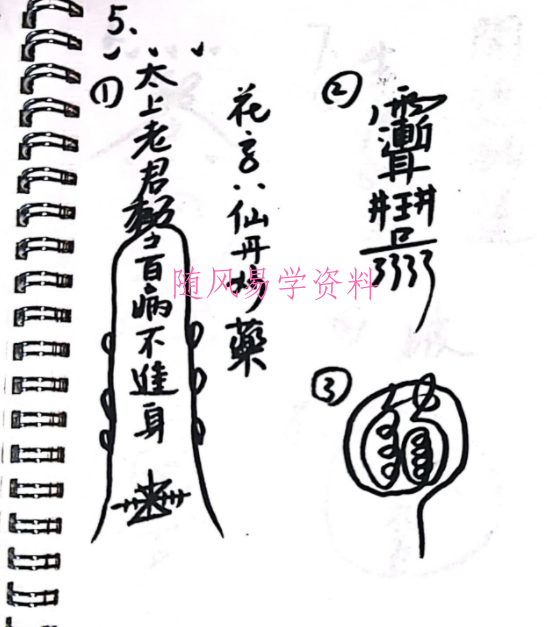 5、
①
太上老君敕令百病不進身
花字八仙丹妙藥
②
③
随风易学资料